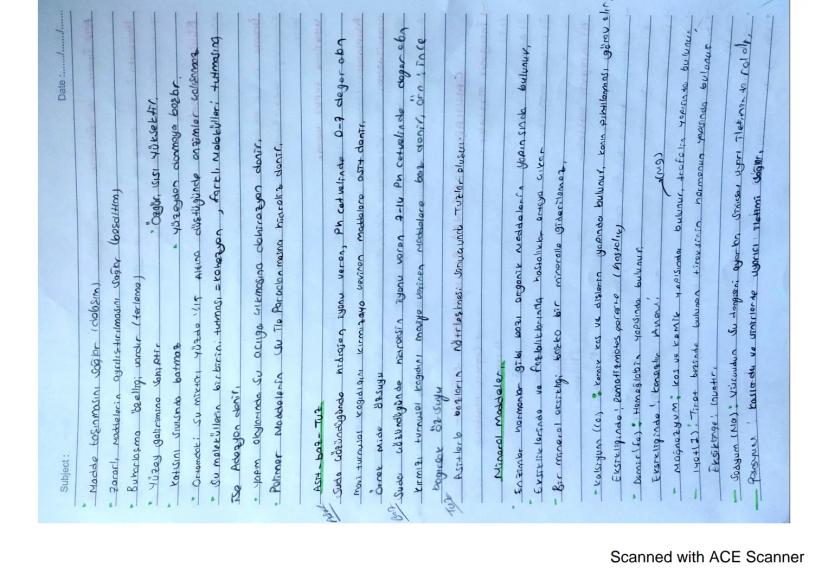 Subject:
Date :
Madde taşınmasını sağlar (dolaşım)
Zararlı maddelerin sağlar (boşaltım)
Buharlaşma özelliği vardır (terleme)
Özgül ısısı yüksektir.
Yüzey gerilimine sahiptir
Katısı sıvısında batmaz
yüzeyden donmaya başlar.
Ortamdaki su miktarı yüzde %15 Altına düştüğünde enzimler çalışmaz
Su moleküllerin birbirini tutması = kohezyon, farklı Molekülleri tutmasına
ise Adezyon denir.
yapım olaylarında su açığa çıkmasına dehidrasyon denir.
Polimer Maddelerin su ile Parçalanmasına hidroliz denir.
Asit - baz - Tuz
Asit Suda çözündüğünde hidrojen iyonu veren, Ph cetvelinde 0-7 değer alan
mavi turnusol kağıdını kırmızıya çeviren maddelere asit denir.
Örnek Mide Özsuyu
Baz Suda çözündüğünde hidroksin iyonu veren 7-14 Ph cetvelinde değer alan
kırmızı turnusol kağıdını maviye çeviren maddelere baz denir, örn : ince
bağırsak öz suyu
Tuz Asitlerle bazların Nötrleşmesi sonucunda Tuzlar oluşur.
Mineral Maddeler
Enzimler hormonlar gibi bazı organik maddelerin yapısında bulunur,
Eksikliklerinde ve fazlalıklarında hastalıklar ortaya çıkar
Bir mineral eksikliği başka bir mineralle giderilemez,
Kalsiyum (Ca) : kemik kas ve dişlerin yapısında bulunur, kanın pıhtılaşması görev alır
Eksikliğinde :
Demir (Fe) : Hemoglobin yapısında bulunur.
Eksikliğinde : kansızlık
(Mg)
Mağnezyum : kas ve kemik yapısında bulunur, yapısında bulunur.
iyot (I) : Tiroit bezinde bulunan hormonun yapısında bulunur
Sodyum (Na) : Vücudun su dengesini ayarlar Sinirsel uyarı iletiminde rol alır,
kaslarda ve sinirlerde uyarıcı iletimi sağlar.
Scanned with ACE Scanner